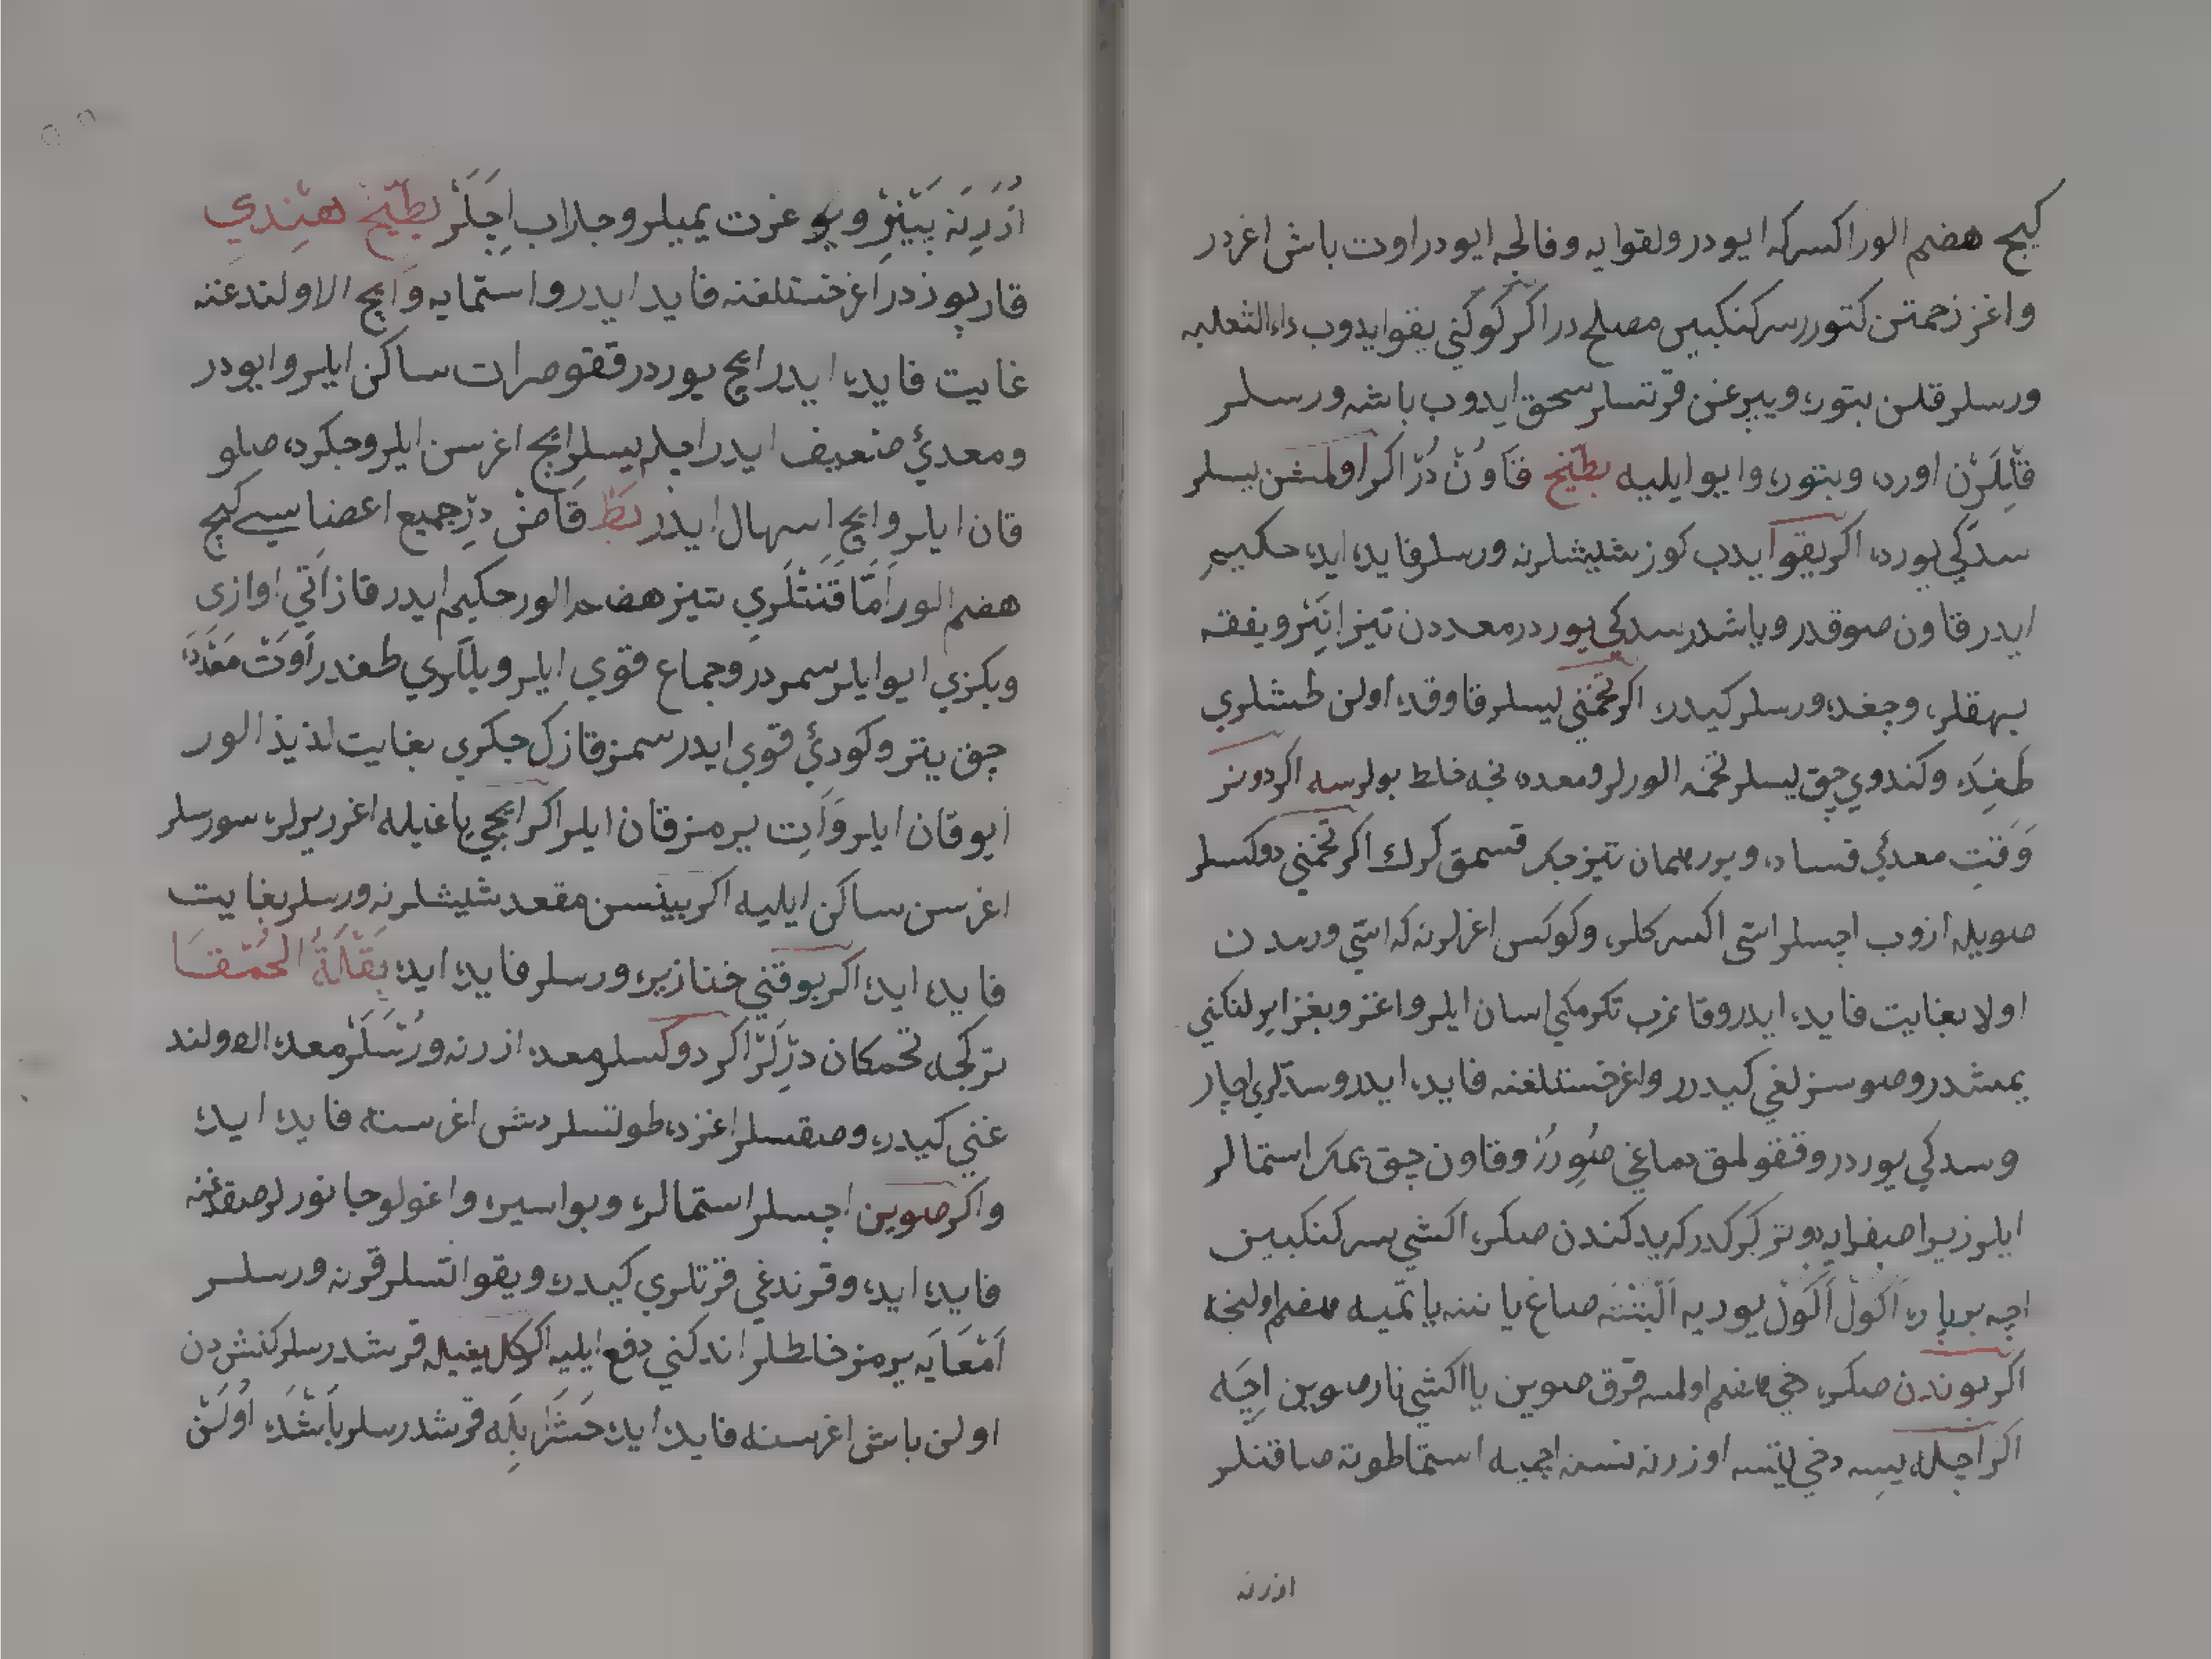 كيج هضم الور اكسركه ايو در ولقوايه وفالجه ايو در اوت باش اغردر
واغز زحمتن كتورر سركنكبين مصلح در اكر كوكني يقوايدوب داءالثعلبه
ورسلر قلن بتوره ويبرغن قرتسلر سحق ايدوب باشه ورسلر
قِلِلَرْن اوره وبتوره وايو ايليه بطّيخ قَاوُنْ دُرْ اكر اولمشن يسلر
سدكي يوره اكر يقوايدب كوز شيشلرنه ورسلر فايده ايده حكيم
ايدر قاون صوقدر وياشدر سدكي يور در معددن تيز اِنَرْ ويفقه
بهقلره وچغده ورسلر كيدره اكر تخمني ليسلر قاوقده اولن طشلري
طَغِدَه وكندوي چق ليسلر تخمه الورلر ومعده نجه خلط بولرسه اكر دونر
وَقْتِ معدئي فساده ويور همان تيز جكر قسمق كرك اكر تخمني دوكسلر
صويله ازوب اچسلر اسّي اكسركلره وكوكس اغرلرنه كه اسّي ورمدن
اولا بغايت فايده ايدر وقاغرب تكرمكي اسان ايلر واغز وبغز ايرلنكني
يمشدر وصوسزلغي كيدرر واغرخستلغنه فايده ايدر وسدّلري اچار
وسدكي يور در وققولمق دماغي صُوِرُرْ وقاون چق يمك استمالر
ايلر زيرا صفرايه دونر كركدركه يدكندن صكره اكشي سركنكبين
اچه بوباره اَكُولْ اَكُولْ يوريه اَلْبَتْتَه صاغ يا ننه ياتميه هضم اولنجه
اكر بوندن صكره دخي هضم اولمسه قرق صوين يا اكشي نار صوين اِچَه
اكر اچله ييسه دخي يتسه اوزرنه نسنه اچميه استماطوته صاقنلر
ازرنه
اُزْرِنَه بَيْنِزِ ويج غزت يميلر وجلاب اِچَلَرْ بطّيخ هِنْدِي
قارپوز در اغرخستلغنه فايد ايدر واستمايه وايج الاولندغنه
غايت فايده ايدر ايج يور در ققو صرات ساكن ايلر وايودر
ومعدئي ضعيف ايدر اچله يسلر ايج اغرسن ايلر وجكره صلو
قان ايلر وايج اسهال ايدر بَطّ قَاضْ دِرْ جميع اعضاسي كيج
هضم الور اَمّا قَنَتْلَرِي تيز هضم الور حكيم ايدر قاز اتي اوازي
وبكزي ايو ايلر سمردر وجماع قوي ايلر ويلاري طغدر اَوَتْ مَعْدَدَه
چق يتر وكودئي قوي ايدر سمز قازك جكري بغايت لذيذ الور
ايو قان ايلر وَاَتِ يرمز قان ايلر اكر ايجي ياغيله اغرر يرلره سورسلر
اغرسن ساكن ايليه اكر بينسن مقعد شيشلرنه ورسلر بغايت
فايده ايده اكر بوقني خنازيره ورسلر فايده ايده بَقْلَةُ الحُمْقَا
تركجه تخمكان دِرْلَرْ اكر دوكسلر معده ازرنه وُرْسَلَرْ معده الاولند
غني كيدره وصقسلر اغزده طوتسلر دش اغرسنه فايده ايده
واكر صوين اچسلر استمالره وبواسيره واغولو جانورلر صقدغنه
فايده ايده وقرندغي قرتلري كيدره ويقو اتسلر قرنه ورسلر
اَمْعَايَه يرمز خلطلر اندكني دفع ايليه اكر كل يغيله قرشدرسلر كنشدن
اولن باش اغرسنه فايده ايده خَشْخَاشْ بِلَه قرشدرسلر بَاشْدَه اُولَنْ